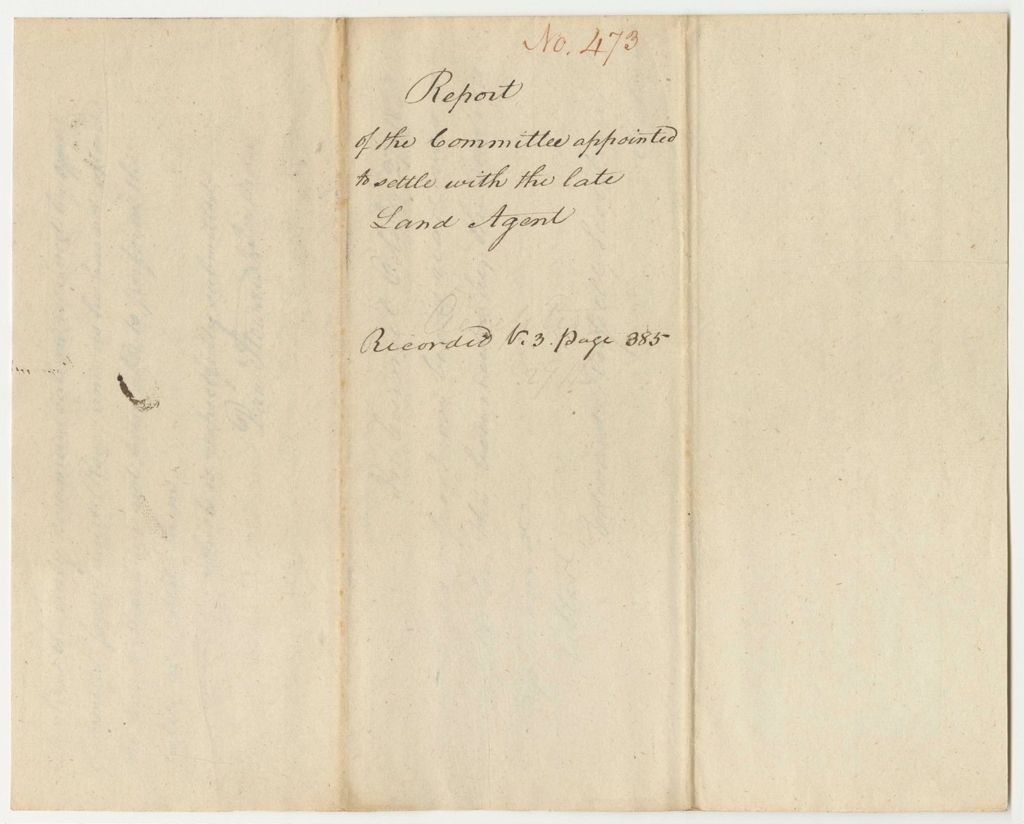 No. 473
Report
of the Committee appointed
to settle with the late
Land Agent
Recorded V. 3. page 385